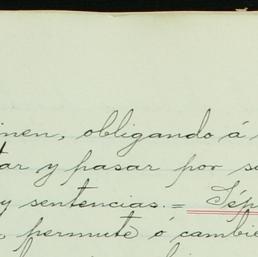 inen, obligando á
tar y pasar por s
y sentencias.= Sép
, permute ó cambie